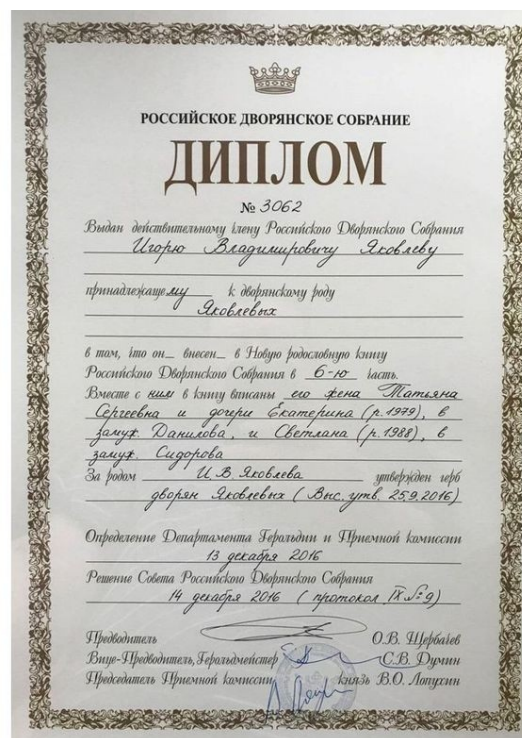 РОССИЙСКОЕ ДВОРЯНСКОЕ СОБРАНИЕ
ДИПЛОМ
№ 3062
Выдан действительному члену Российского Дворянского Собрания
Игорю Владимировичу Яковлеву
принадлежащему к дворянскому роду
Яковлевых
в том, что он внесен в Новую родословную книгу
Российского Дворянского Собрания в 6-ю часть.
Вместе с ним в книгу вписаны его жена Татьяна
Сергеевна и дочери Екатерина (р. 1979), в
замуж. Данилова, и Светлана (р. 1988), в
замуж. Сидорова
За родом И.В. Яковлева утвержден герб
дворян Яковлевых (Выс. утв. 25.9.2016)
Определение Департамента Герольдии и Приемной комиссии
13 декабря 2016
Решение Совета Российского Дворянского Собрания
14 декабря 2016 (протокол IX № 9)
Предводитель О.В. Щербачев
Вице-Предводитель, Герольдмейстер С.В. Думин
Председатель Приемной комиссии князь В.О. Лопухин